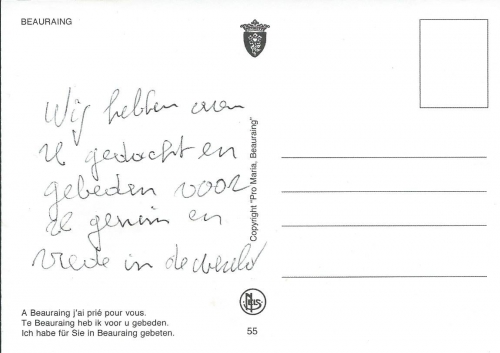 BEAURAING
Wij hebben aan
U gedacht en
gebeden voor
Uw gezin en
vrede in de wereld
Copyright "Pro Maria, Beauraing"
A Beauraing j'ai prié pour vous.
Te Beauraing heb ik voor u gebeden.
Ich habe für Sie in Beauraing gebeten.
55